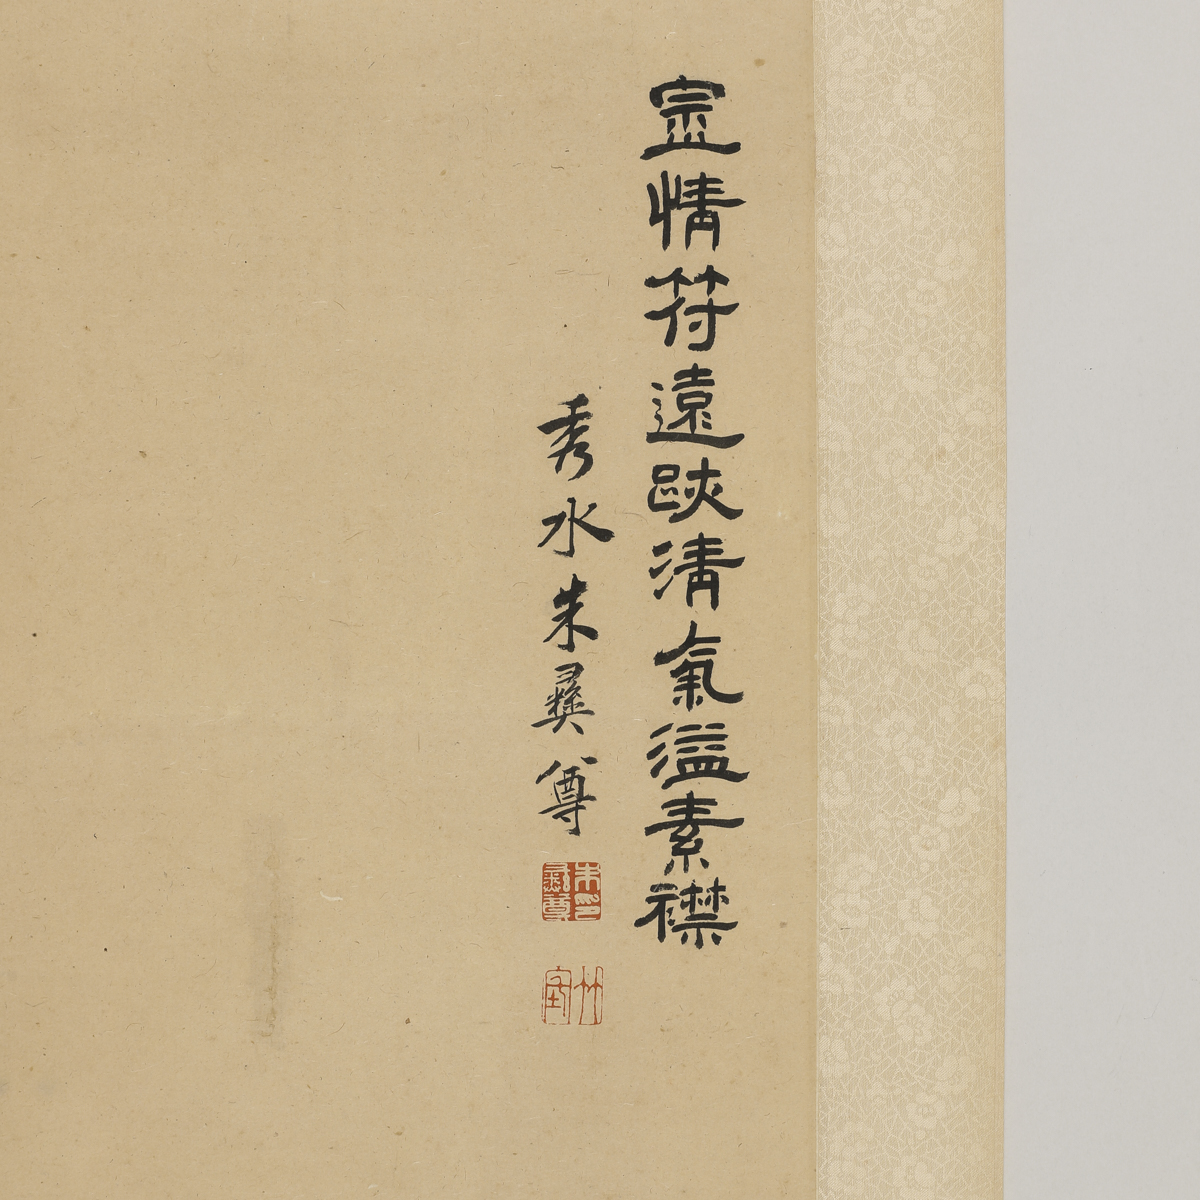 霊情符遠跡清氣溢素襟
秀水朱彝尊
朱彝尊印
竹垞